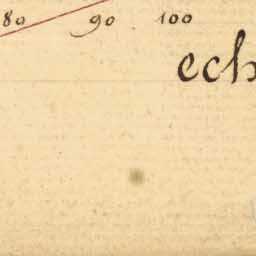 80 90 100
ech